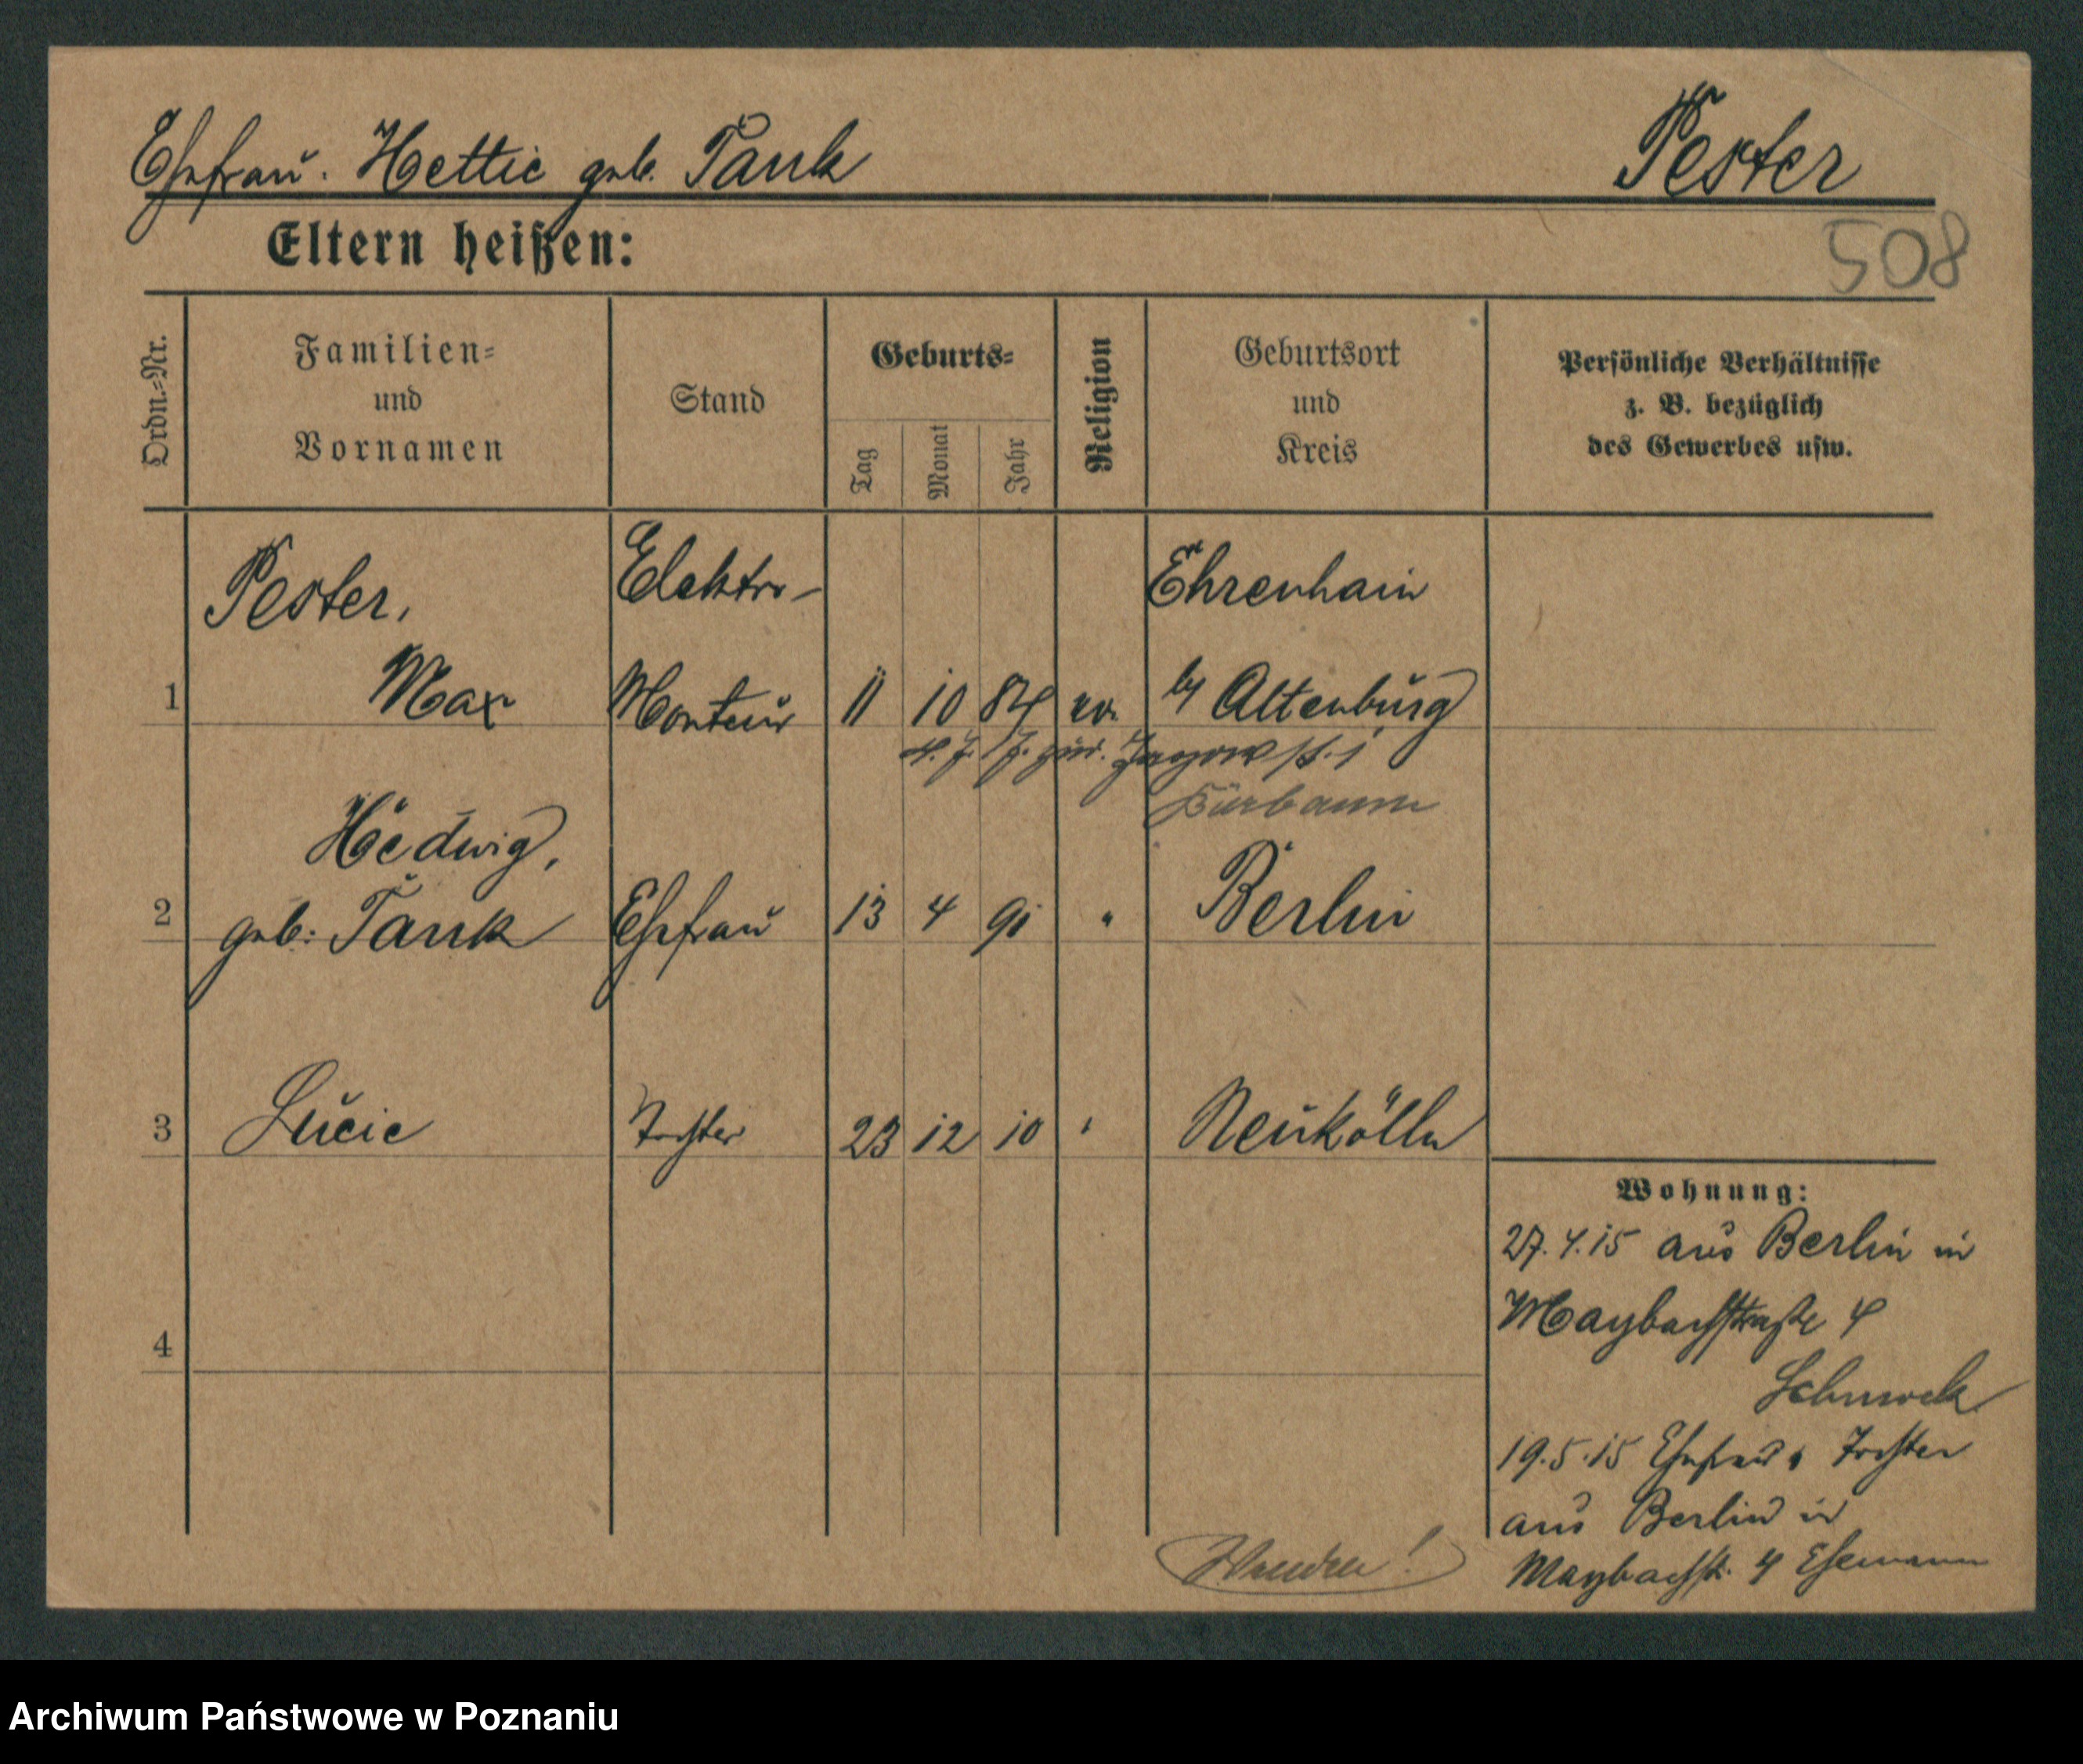 Ehefrau. Hettie geb. Tauk
Pester
Eltern heißen:
508
Ordn.=Nr.
Familien=
und
Vornamen
Stand
Geburts=
Tag
Monat
Jahr
Religion
Geburtsort
und
Kreis
Persönliche Verhältnisse
z. B. bezüglich
des Gewerbes usw.
Pester,
Elektro-
Ehrenhain
1 Max Monteur 11 10 84 ev. by Altenburg
Jagowst. 1
Hedwig,
2 geb: Tauk Ehefrau 13 4 91 " Berlin
3 Lucie Tochter 23 12 10 " Neukölln
4
Wohnung:
27.4.15 aus Berlin in
Maybachstraße 4
19.5.15 Ehefrau Tochter
aus Berlin in
Maybachstr. 4 Ehemann
Wenden!
Archiwum Państwowe w Poznaniu